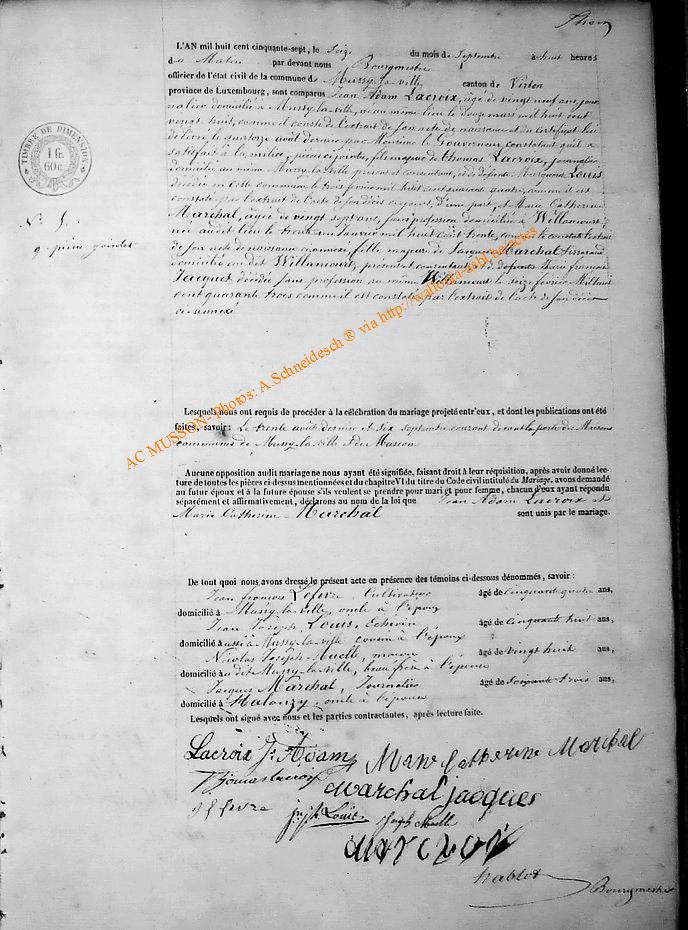 L'AN mil huit cent cinquante-sept, le Seize du mois de Septembre à huit heures
du Matin par devant nous Bourgmestre
officier de l'état civil de la commune de Mussy-la-ville canton de Virton
province de Luxembourg, sont comparus Jean Adam Lacroix, âgé de vingt neuf ans, jour
nalier domicilié à Mussy-la-ville, né au même lieu le douze mars mil huit cent
vingt huit, comme il conste de l'extrait de son acte de naissance et du certificat lui
delivré le quatorze août dernier par Monsieur le Gouverneur constatant qu'il a
satisfait à la milice, pièces ci jointes, fils majeur de Thomas Lacroix, journalier
domicilié au même Mussy-la-ville présent et consentant, et de défunte Marguerite Louis
décédée en cette commune le trois février mil huit cent quarante quatre, comme il est
constaté par l'extrait de l'acte de son décès ci joint, d'une part, et Marie Catherine
Marchal, âgée de vingt sept ans, sans profession domiciliée à Willancourt
née audit lieu le trente un Janvier mil huit cent trente, comme le constate l'extrait
de son acte de naissance ci annexé, fille majeure de Jacques Marchal
domicilié audit Willancourt, présent et consentant et de défunte Marie françoise
Jacquet décédée sans profession au même Willancourt le seize février Mil huit
cent quarante trois comme il est constaté par l'extrait de l'acte de son décès
ci annexé
TIMBRE DE DIMENSION
1 fr.
60 c.
N° 5.
9 pièces jointes
Lesquels nous ont requis de procéder à la célébration du mariage projeté entr'eux, et dont les publications ont été
faites, savoir: Le trente août dernier et six septembre courant devant la porte des Maisons
communes de Mussy-la-ville et de Musson
Aucune opposition audit mariage ne nous ayant été signifiée, faisant droit à leur réquisition, après avoir donné lec-
ture de toutes les pièces ci-dessus mentionnées et du chapitre VI du titre du Code civil intitulé du Mariage, avons demandé
au futur époux et à la future épouse s'ils veulent se prendre pour mari et pour femme, chacun d'eux ayant répondu
séparément et affirmativement, déclarons au nom de la loi que Jean Adam Lacroix et
Marie Catherine Marchal sont unis par le mariage.
De tout quoi nous avons dressé le présent acte en présence des témoins ci-dessous dénommés, savoir:
Jean françois Lefevre, Cultivateur âgé de Cinquante quatre ans,
domicilié à Mussy-la-ville, oncle à l'époux
Jean Joseph Louis, Echevin âgé de Cinquante huit ans,
domicilié aussi à Mussy-la-ville cousin à l'époux
Nicolas Joseph Muelle, âgé de Vingt huit ans,
domicilié audit Mussy-la-ville, beau frère à l'épouse
Jacques Marchal, Journalier âgé de Soixante trois ans,
domicilié à Halanzy, oncle à l'épouse
Lesquels ont signé avec nous et les parties contractantes, après lecture faite.
Lacroix J. Adam Marie Catherine Marchal
Thomas Lacroix
Marchal Jacques
Lefevre Louis
Hablot
Bourgmestre
AC MUSSON- Photos: A.Schneidesch ® via http://wallonia-asbl.be/actes